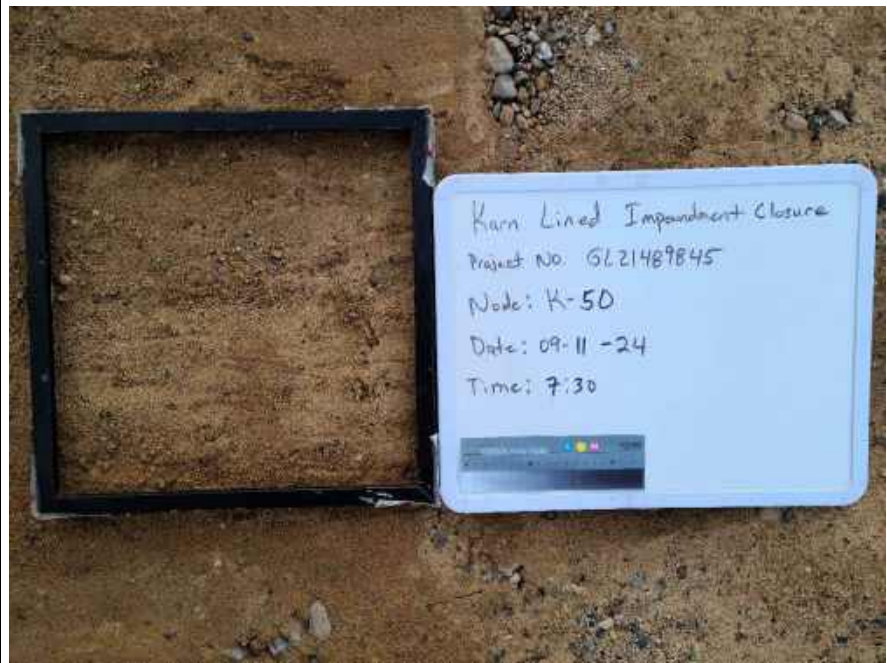 Karn Lined Impoundment Closure
Project No. GL21489845
Node: K-50
Date: 09-11-24
Time: 7:30